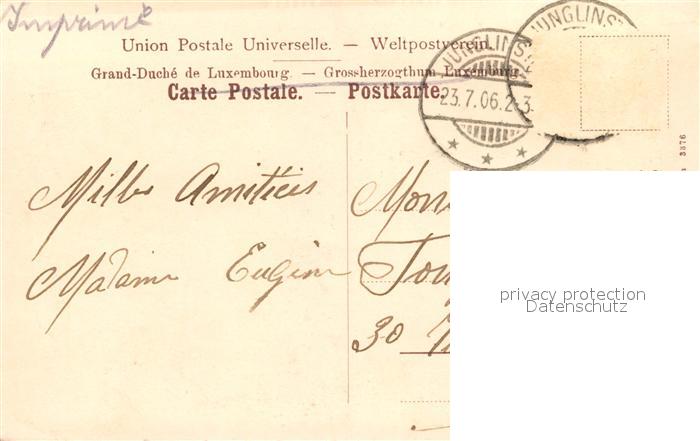 Imprimé
Union Postale Universelle. — Weltpostverein.
Grand-Duché de Luxembourg. — Grossherzogthum Luxemburg
Carte Postale. — Postkarte.
JUNGLINST
23.7.06.2-3
JUNGLINST
3876
Milles Amitiés
Madame Eugénie
30
privacy protection
Datenschutz